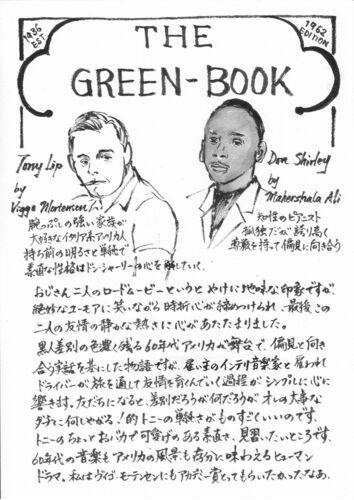 1936 EST
1962 EDITION
THE
GREEN-BOOK
Tony Lip
by
Viggo Mortensen
腕っぷしの強い家族が
大好きなイタリア系アメリカ人
持ち前の明るさと単純で
素直な性格はドン・シャーリーの心を解していく
Don Shirley
by
Mahershala Ali
知性のピアニスト
孤独だが誇り高く
勇敢を持って偏見に向き合う
おじさん二人のロードムービーというとやけに地味な印象ですが
絶妙なユーモアに笑いながら時折心が締めつけられ、最後この
二人の友情の静かな熱さに心があたたまりました。
黒人差別の色濃く残る60年代アメリカが舞台で、偏見と向き
合う実話を基にした物語ですが、雇い主のインテリ音楽家と雇われ
ドライバーが旅を通して友情を育んでいく過程がシンプルに心に
響きます。友だちになると差別だろうが何だろうがオレの大事な
ダチに何しやがる!的トニーの単純さがものすごくいいのです。
トニーのちょっとおバカで可愛げのある素直さ、見習いたいところです。
60年代の音楽もアメリカの風景も存分に味わえるヒューマン
ドラマ。私はヴィゴ・モーテンセンにもアカデミー賞とってもらいたかったなあ。